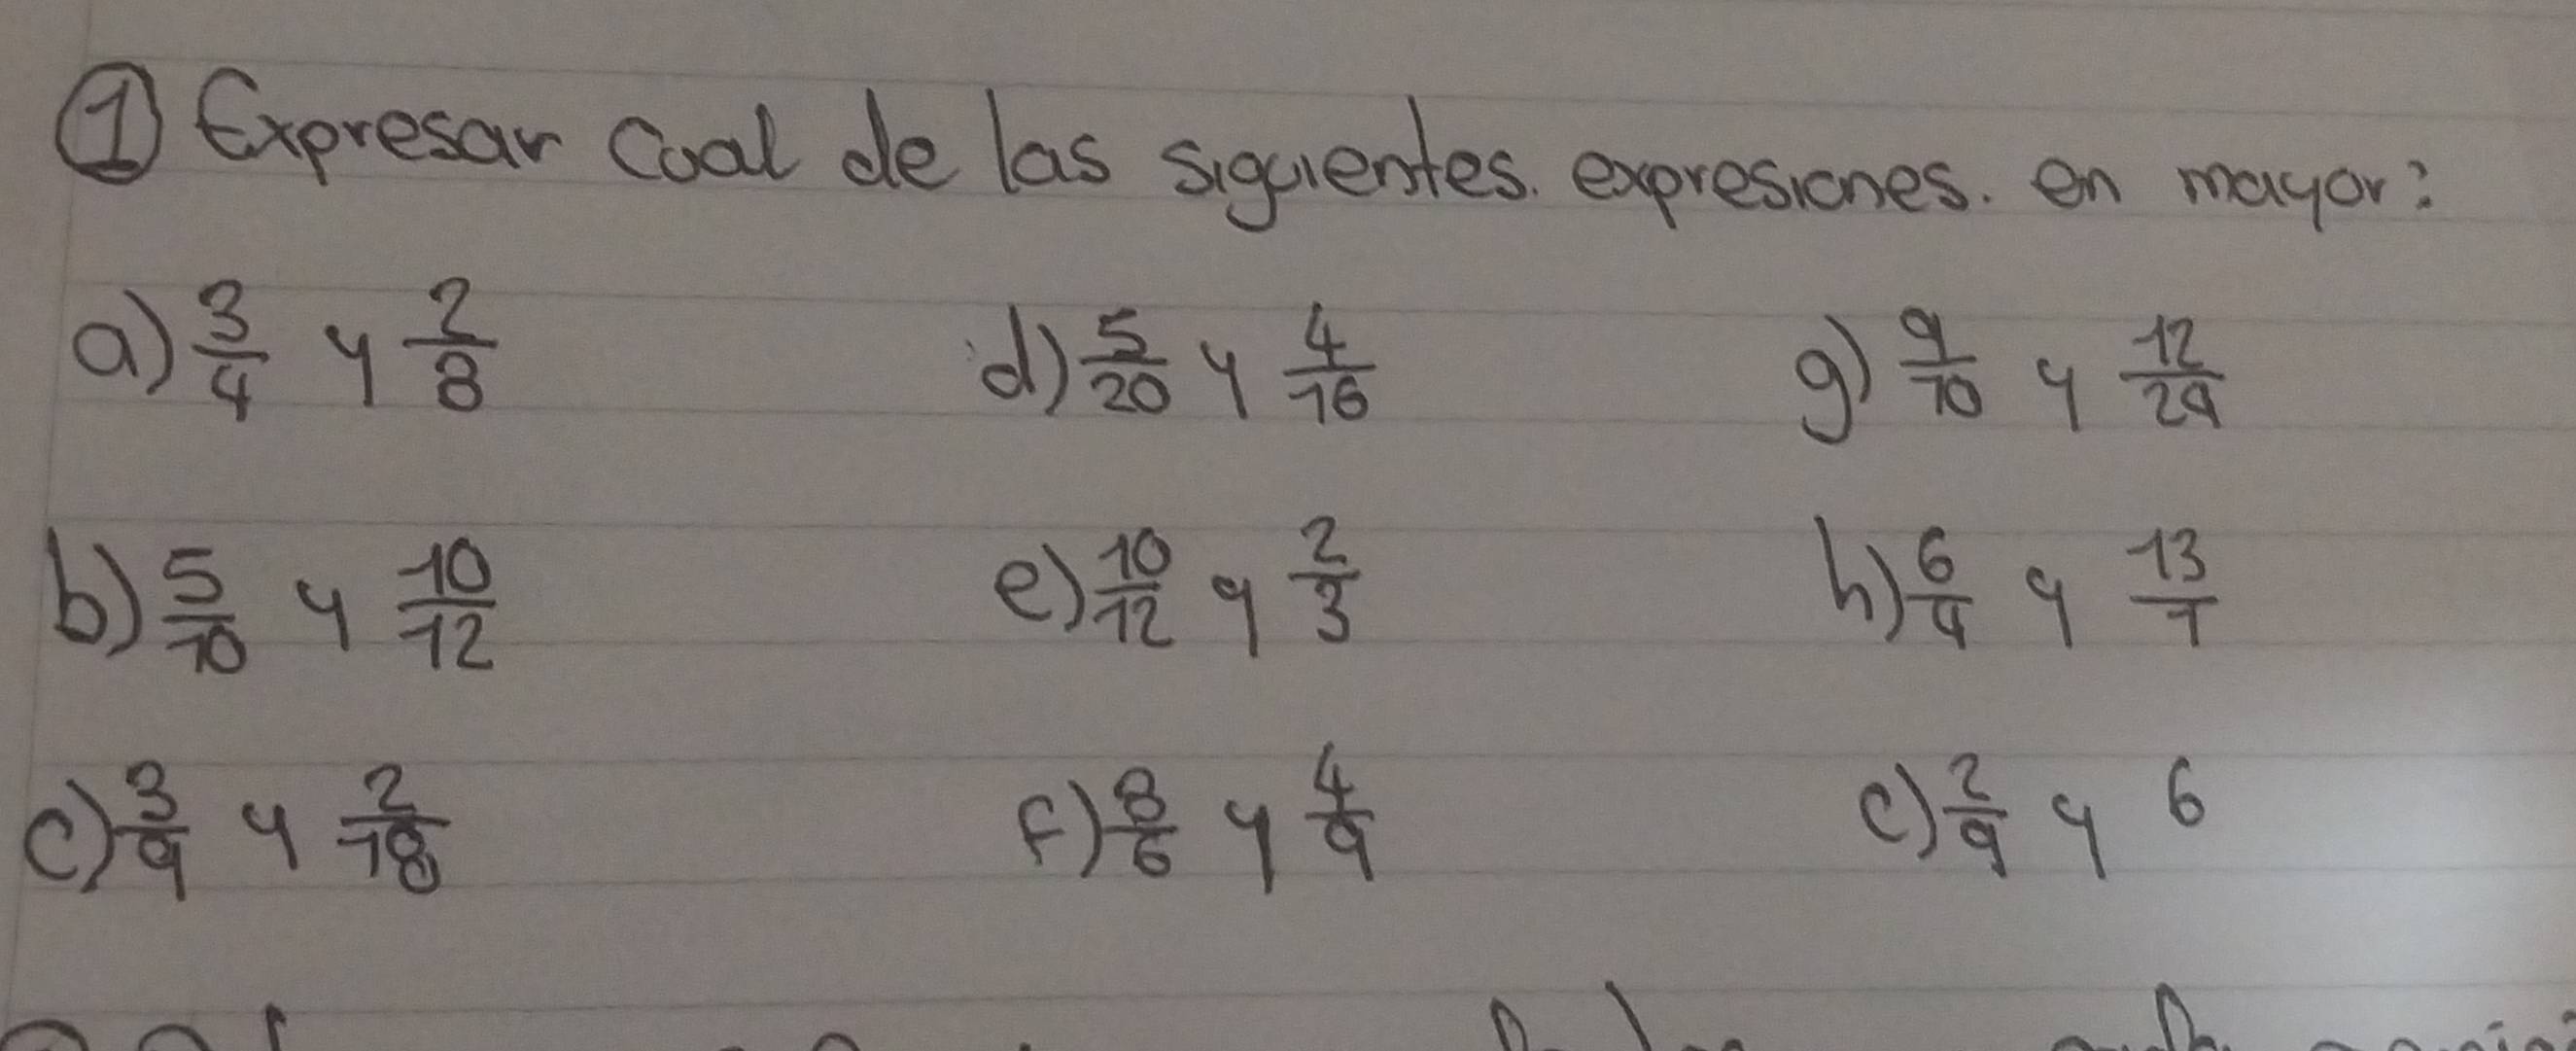 ① Expresar Cual de las siguientes. expresiones. en mayor:
a) 3/4 y 2/8 d) 5/20 y 4/16 g) 9/10 y 12/24
b) 5/10 y 10/12 e) 10/12 y 2/3 h) 6/4 y 13/7
c) 3/9 y 2/18 f) 8/6 y 4/9 c) 2/9 y 6